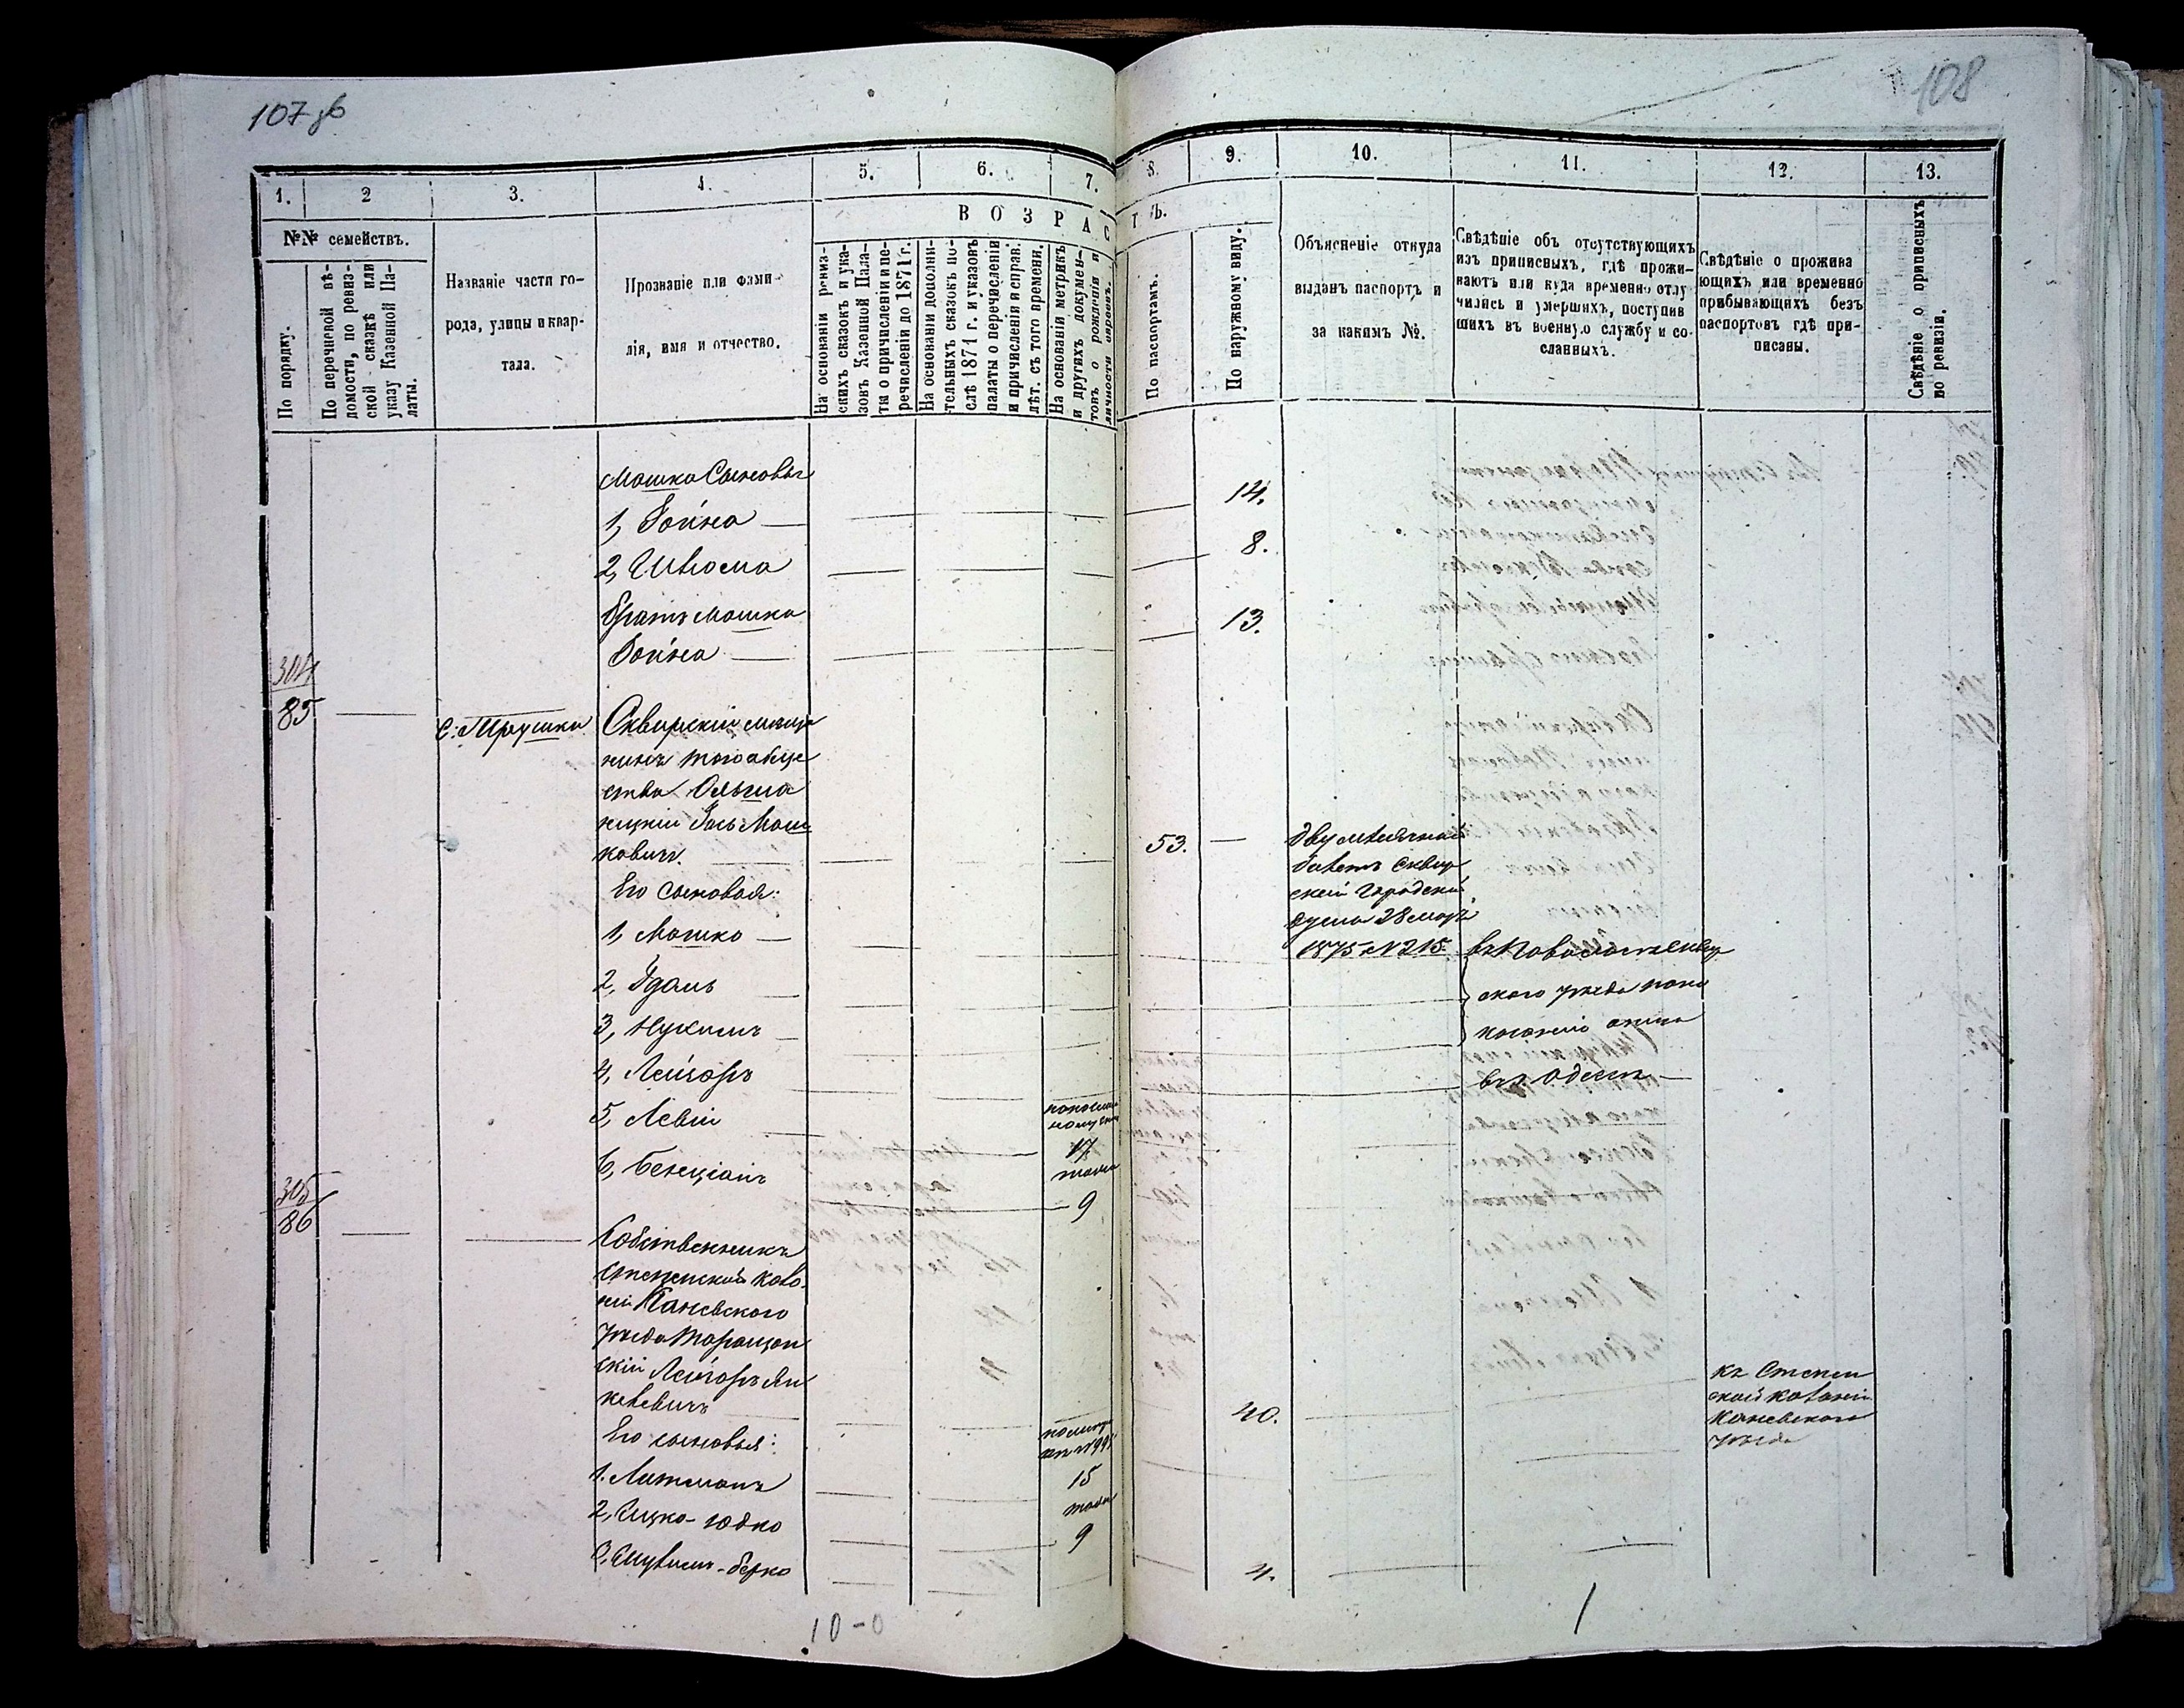 107 об
108
1.
2
3.
4.
5.
6.
7.
8.
9.
10.
11.
12.
13.
№№ семействъ.
По порядку.
По перечневой вѣ-
домости, по ревиз-
ской сказкѣ или
указу Казенной Па-
латы.
Названіе части го-
рода, улицы и квар-
тала.
Прозваніе или фами-
лія, имя и отчество.
ВОЗРАСТЪ.
На основаніи ревиз-
скихъ сказокъ и ука-
зовъ Казенной Пала-
ты о причисленіи и пе-
речисленіи до 1871 г.
На основаніи дополни-
тельныхъ сказокъ по-
слѣ 1871 г. и указовъ
палаты о перечисленіи
и причисленіи и справ.
лѣт. съ того времени.
На основаніи метрикъ
и другихъ докумен-
товъ о рожденіи и
личности евреевъ.
По паспортамъ.
По наружному виду.
Объясненіе откуда
выданъ паспортъ и
за какимъ №.
Свѣдѣніе объ отсутствующихъ
изъ приписныхъ, гдѣ прожи-
ваютъ или куда временно отлу
чились и умершихъ, поступив
шихъ въ военную службу и со-
сланныхъ.
Свѣдѣніе о прожива
ющихъ или временно
прибывающихъ безъ
паспортовъ гдѣ при-
писаны.
Свѣдѣніе о приписныхъ
по ревизіи.
Мошка Сыновья
1, Война — 14.
2, Шлома 8.
Братъ Мошка
Война 13.
304
85
Сквирскій мѣща
нинъ того обще
ства Ольша
ницкій Іось Мош
ковичъ.
53.
Его сыновья:
1, Мошко —
2, Удаль
3, Нухимъ
4, Лейзоръ
5, Левій
17
6, Бенціанъ
9
двумѣсячный
билетъ Сквир
ской Городской
Думы 28 мар
1875 №215.
ского уѣзда пока
въ г. Одессѣ —
305
86
Собственникъ
Степенской коло
ніи Каневского
уѣзда Таращан
скій Лейзоръ Ян
келевичъ
40.
къ Степен
ской колоніи
Каневского
уѣзда
Его сыновья:
1. Литманъ
15
2, Ицко-Юдко
9
3, Шулимъ-Берко
4.
10-0